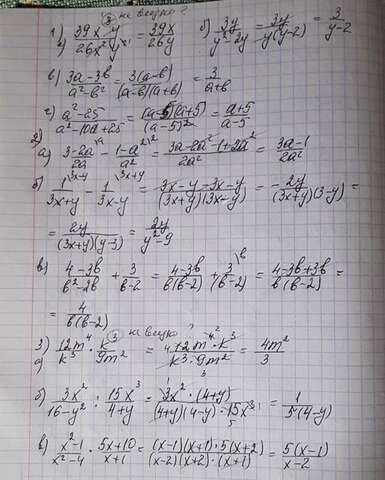 не видно ?
1) а) 39x³y/26x²y = 39x/26y б) 3y/y²-2y = 3y/y(y-2) = 3/y-2
в) 3a-3b/a²-b² = 3(a-b)/(a-b)(a+b) = 3/a+b
г) a²-25/a²-10a+25 = (a-5)(a+5)/(a-5)² = a+5/a-5
2)
а) 3-2a/2a \a - 1-a²/a² \2 = 3a-2a²-1+2a²/2a² = 3a-1/2a²
б) 1/3x+y \3x-y - 1/3x-y \3x+y = 3x-y-3x-y/(3x+y)(3x-y) = -2y/(3x+y)(3-y) =
= 2y/(3x+y)(y-3) = 2y/y²-9
в) 4-3b/b²-2b + 3/b-2 = 4-3b/b(b-2) + 3/(b-2) \b = 4-3b+3b/b(b-2) =
= 4/b(b-2)
не видно ?
3) а) 12m⁴/k³ · k³/9m² = 12m⁴·k³/k³·9m² = 4m²/3
б) 3x²/16-y² : 15x³/4+y = 3x²·(4+y)/(4+y)(4-y)·15x³ = 1/5(4-y)
в) x²-1/x²-4 · 5x+10/x+1 = (x-1)(x+1)·5(x+2)/(x-2)(x+2)·(x+1) = 5(x-1)/x-2